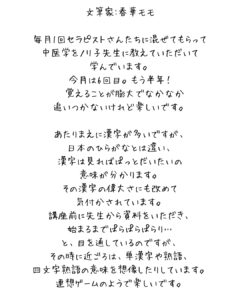 文筆家:春華モモ
毎月1回セラピストさんたちに混ぜてもらって
中医学をノリ子先生に教えていただいて
学んでいます。
今月は6回目。もう半年!
覚えることが膨大でなかなか
追いつかないけれど楽しいです。
あたりまえに漢字が多いですが、
日本のひらがなとは違い、
漢字は見ればぱっとだいたいの
意味が分かります。
その漢字の偉大さにも改めて
気付かされています。
講座前に先生から資料をいただき、
始まるまでぱらぱらぱらり…
と、目を通しているのですが、
その時に近ごろは、単漢字や熟語、
四文字熟語の意味を想像したりしています。
連想ゲームのようで楽しいです。